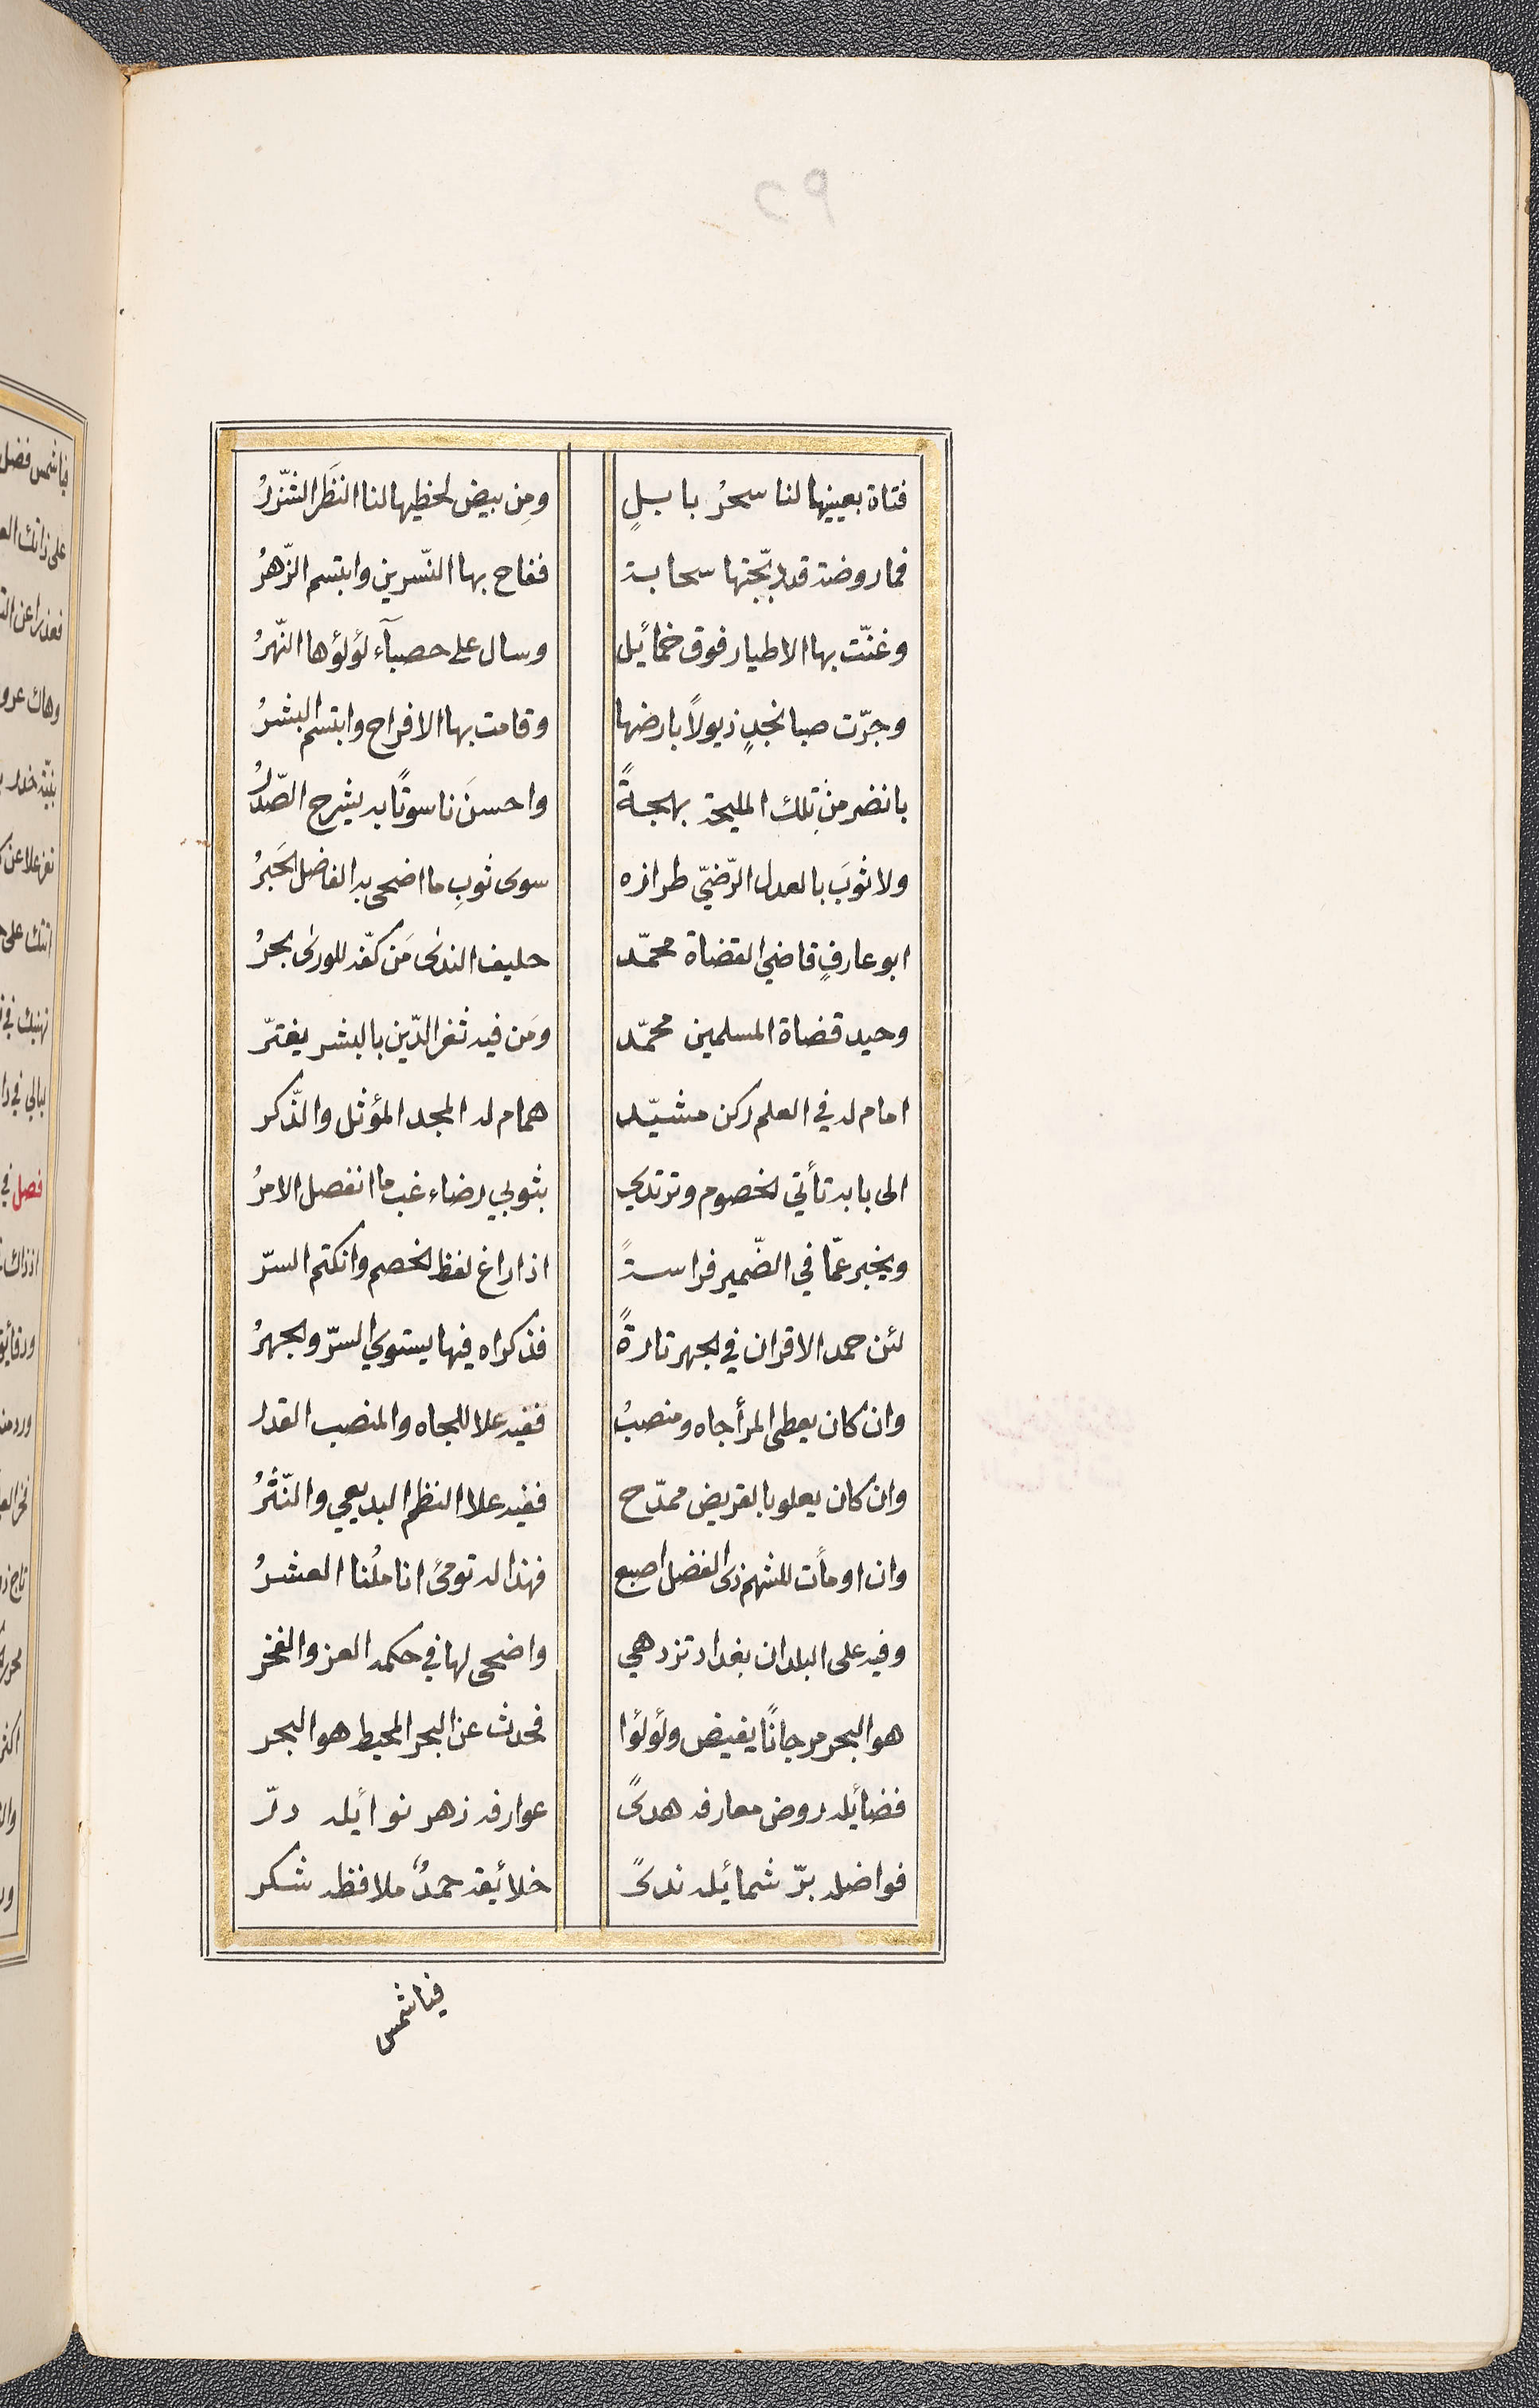 فتاة بعينيها لنا سحرُ بابلٍ ومِن بيض لحظيها لنا النظَر الشّزرُ
فما روضة قد دبّجتها سحابة ففاح بها النّسرين وابتسم الزّهرُ
وغنّت بها الاطيار فوق خمائل وسال على حصبآء لؤلؤها النّهرُ
وجرّت صبا نجدٍ ذيولاً بارضها وقامت بها الافراح وابتسم البشرُ
بانضر من تلك المليحة بهجةً واحسنَ ناسوتًا به يشرح الصّدرُ
ولا ثوبَ بالعدل الرّضيّ طرازه سوى ثوبِ ما اضحى به الفاضل الحَبرُ
ابو عارفٍ قاضي القضاة محمّد حليف الندى مَن كفّه للورى بحرُ
وحيد قضاة المسلمين محمّد ومَن فيه ثغر الدّين بالبشر يفترّ
امام له في العلم ركن مشيّد همام له المجد المؤثل والذّكر
الى بابه تأتي الخصوم وترتدي بثوبي رضاء غب ما انفصل الامرُ
ويخبر عمّا في الضّمير فراسةً اذا راغ لفظ الخصم وانكتم السرّ
لئن حمد الاقران في الجهر تارةً فذكراه فيها يستوي السرّ والجهرُ
وان كان يعطى المرأ جاه ومنصبُ ففيه علا للجاه والمنصب القدر
وان كان يعلو بالقريض ممدّح ففيه علا النظم البديعي والنّثرُ
وان اومأت للشهم ذى الفضل اصبع فهذا له تومئ اناملُنا العشرُ
وفيه على البلدان بغداد تزدهي واضحى لها في حكمه العز والفخر
هو البحر مرجانًا يفيض ولؤلؤا فحدث عن البحر المحيط هو البحر
فضائله روض معارفه هدىً عوارفه زهر نوائله درّ
فواضله برّ شمائله ندىً خلائقه حمدٌ ملافظه شكر
فيا شمس